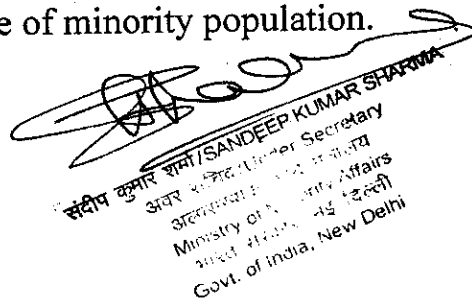 e of minority population.
संदीप कुमार शर्मा/SANDEEP KUMAR SHARMA
अवर Under Secretary
Ministry of Affairs
नई दिल्ली
Govt. of India, New Delhi